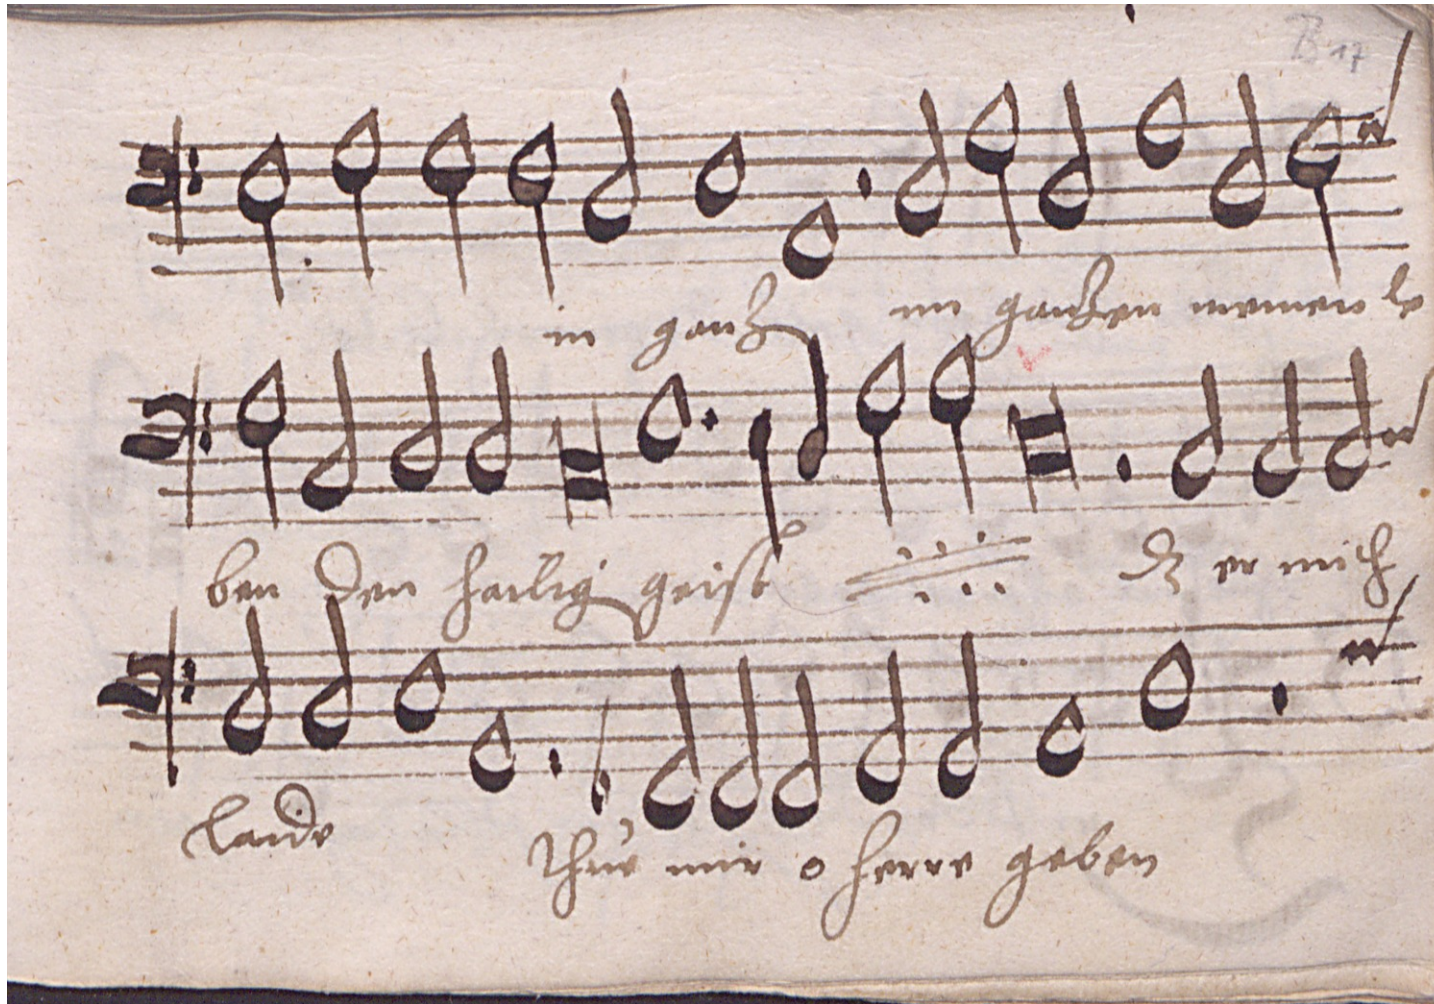 B 17
in ganz im ganzen meinen le
ben den hailig geist dz er mich
laide thue mir o herre geben